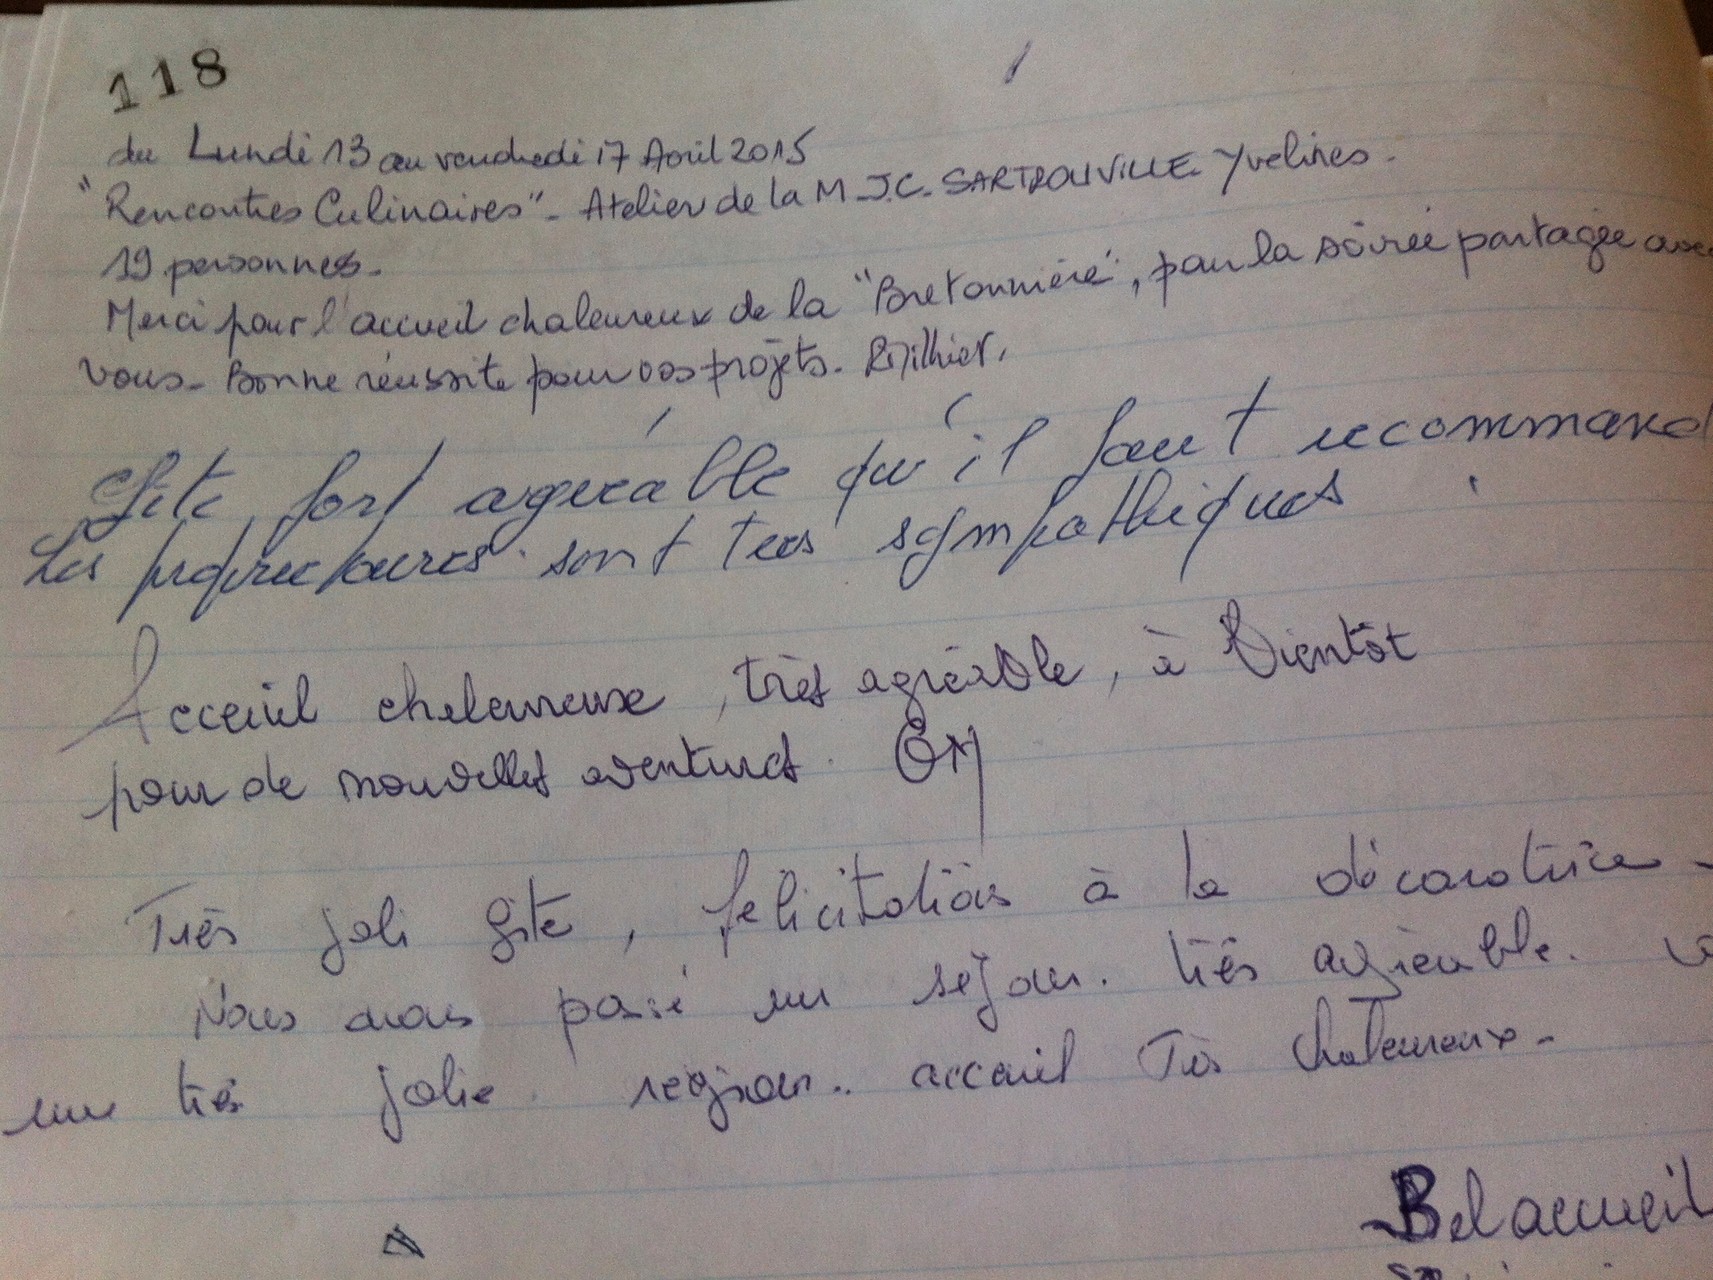 118
du Lundi 13 au vendredi 17 Avril 2015
"Rencontres Culinaires"- Atelier de la M.J.C. SARTROUVILLE. Yvelines.
19 personnes.
Merci pour l'accueil chaleureux de la "Bretonnière", pour la soirée partagée avec
vous- Bonne réussite pour vos projets.
Gîte fort agréable qu'il faut recommand
Les propriétaires sont très sympathiques
Acceuil chaleureux, très agréable, à Bientôt
pour de nouvelles aventures.
Très joli gîte, félicitations à la décoratrice-
Nous avons passé un séjour. très agréable.
une très jolie region.. acceuil Très chaleureux-
Bel accueil